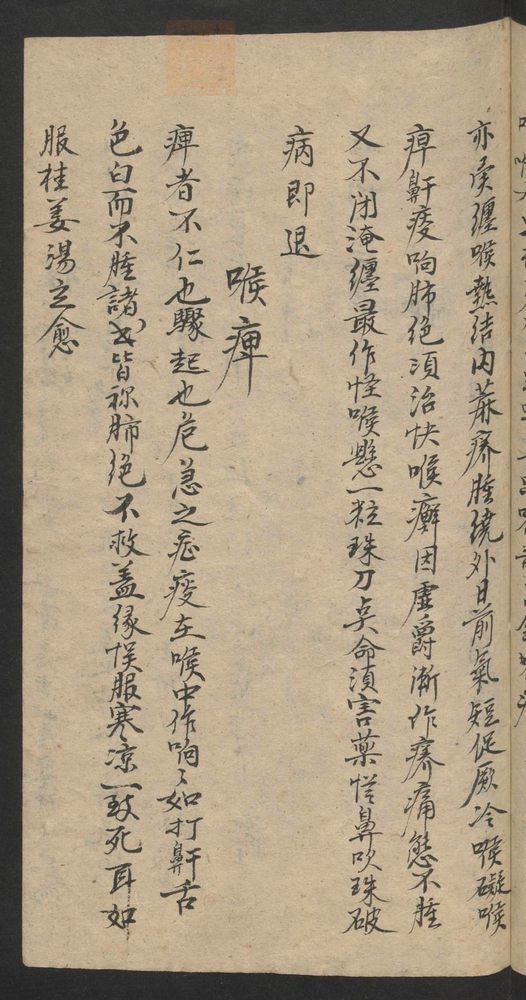 亦常纏喉熱結内麻痒腫繞外日前氣短促厥冷喉礙喉
痺鼾痰响肺绝須治快喉癬因虛爵漸作痒痛態不腫
又不闭淹纏最作怪喉懸一粒珠刀㸃命須害藥慌鼻吹珠破
病即退
喉痺
痺者不仁也驟起也危急之症痰在喉中作响〻如打鼾舌
色白而不腫諸書皆称肺绝不救盖緣悮服寒凉一致死耳如
服桂姜湯立愈